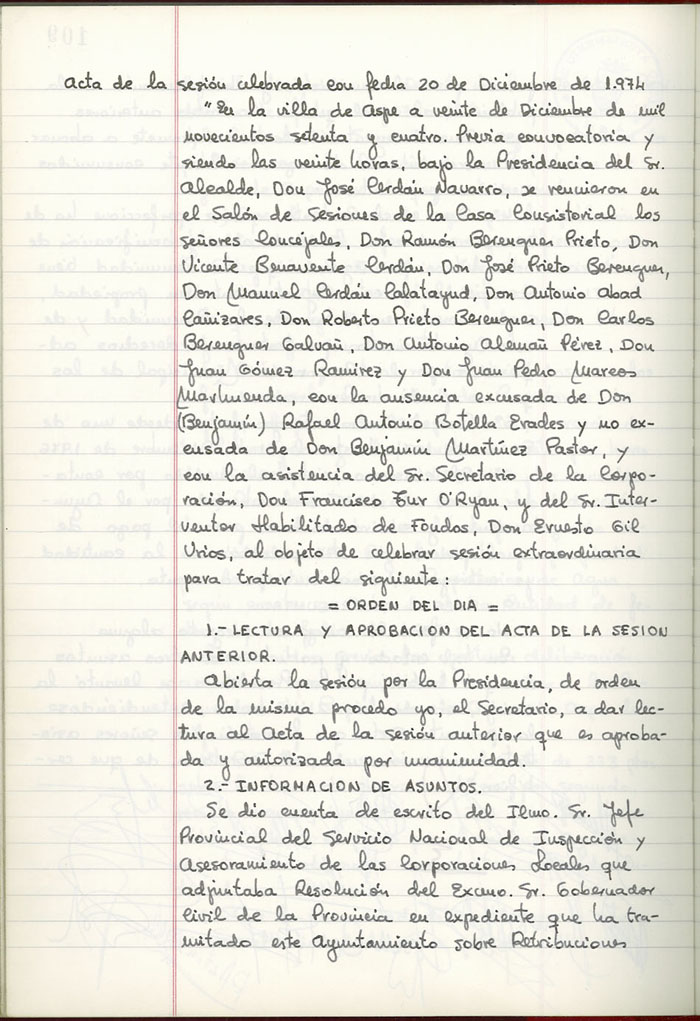 Acta de la sesión celebrada con fecha 20 de Diciembre de 1.974
"En la villa de Aspe a veinte de Diciembre de mil
novecientos setenta y cuatro. Previa convocatoria y
siendo las veinte horas, bajo la Presidencia del Sr.
Alcalde, Don José Cerdán Navarro, se reunieron en
el Salón de Sesiones de la Casa Consistorial los
señores Concejales, Don Ramón Berenguer Prieto, Don
Vicente Benavente Cerdán, Don José Prieto Berenguer,
Don Manuel Cerdán Calatayud, Don Antonio Abad
Cañizares, Don Roberto Prieto Berenguer, Don Carlos
Berenguer Galvañ, Don Antonio Alemañ Pérez, Don
Juan Gómez Ramirez y Don Juan Pedro Marcos
con la ausencia excusada de Don
(Benjamín) Rafael Antonio Botella Erades y no ex-
cusada de Don Benjamín Martínez Pastor, y
con la asistencia del Sr. Secretario de la Corpo-
ración, Don Francisco Tur O'Ryan, y del Sr. Inter-
ventor Habilitado de Fondos, Don Ernesto Gil
Urios, al objeto de celebrar sesión extraordinaria
para tratar del siguiente:
= ORDEN DEL DIA =
1.- LECTURA Y APROBACION DEL ACTA DE LA SESION
ANTERIOR.
Abierta la sesión por la Presidencia, de orden
de la misma procedo yo, el Secretario, a dar lec-
tura al Acta de la sesión anterior que es aproba-
da y autorizada por unanimidad.
2.- INFORMACION DE ASUNTOS.
Se dio cuenta de escrito del Ilmo. Sr. Jefe
Provincial del Servicio Nacional de Inspección y
Asesoramiento de las Corporaciones Locales que
adjuntaba Resolución del Excmo. Sr. Gobernador
Civil de la Provincia en expediente que ha tra-
mitado este Ayuntamiento sobre Retribuciones